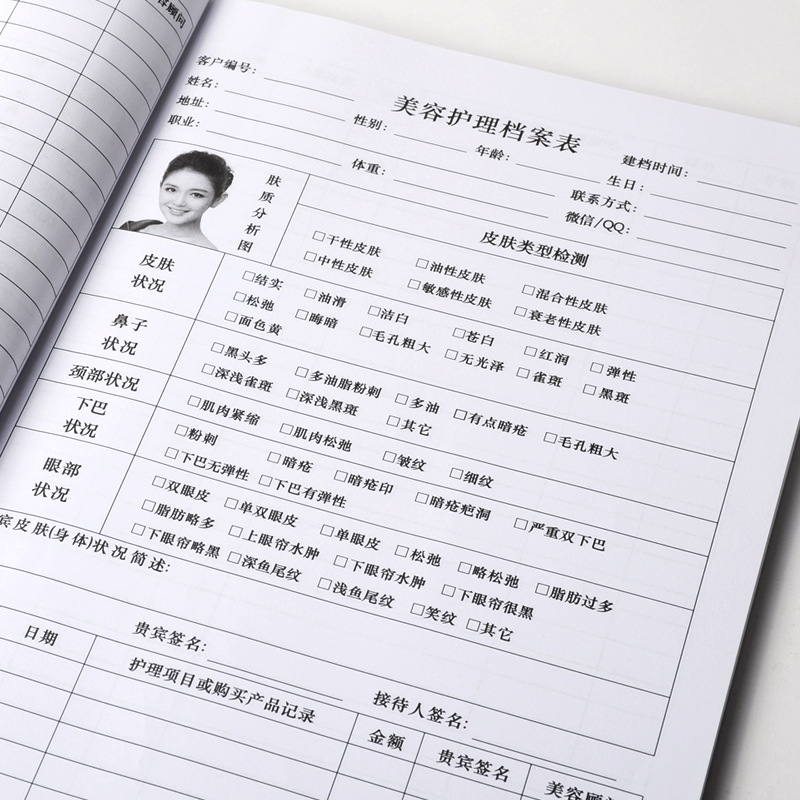 顾问
美容护理档案表
客户编号:
建档时间:
姓名: 性别: 年龄: 生日:
地址: 联系方式:
职业: 体重: 微信/QQ:
肤质分析图
皮肤类型检测
□干性皮肤 □油性皮肤 □混合性皮肤
□中性皮肤 □敏感性皮肤 □衰老性皮肤
皮肤状况
□结实 □油滑 □洁白 □苍白 □红润 □弹性
□松弛 □晦暗 □毛孔粗大 □无光泽 □雀斑 □黑斑
□面色黄
鼻子状况
□黑头多 □多油脂粉刺 □多油 □有点暗疮 □毛孔粗大
□深浅雀斑 □深浅黑斑 □其它
颈部状况
□肌肉紧缩 □肌肉松弛 □皱纹 □细纹
下巴状况
□粉刺 □暗疮 □暗疮印 □暗疮疤洞 □严重双下巴
□下巴无弹性 □下巴有弹性
眼部状况
□双眼皮 □单双眼皮 □单眼皮 □松弛 □略松弛 □脂肪过多
□脂肪略多 □上眼帘水肿 □下眼帘水肿 □下眼帘很黑
□下眼帘略黑 □深鱼尾纹 □浅鱼尾纹 □笑纹 □其它
宾皮肤(身体)状况简述:
贵宾签名: 接待人签名:
日期 护理项目或购买产品记录 金额 贵宾签名 美容顾